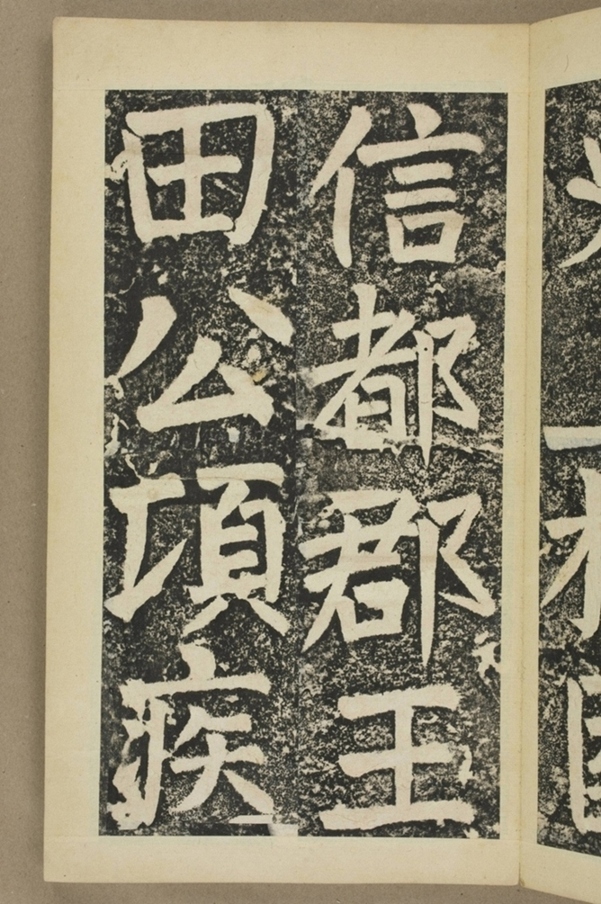 信都郡王
田公頃疾